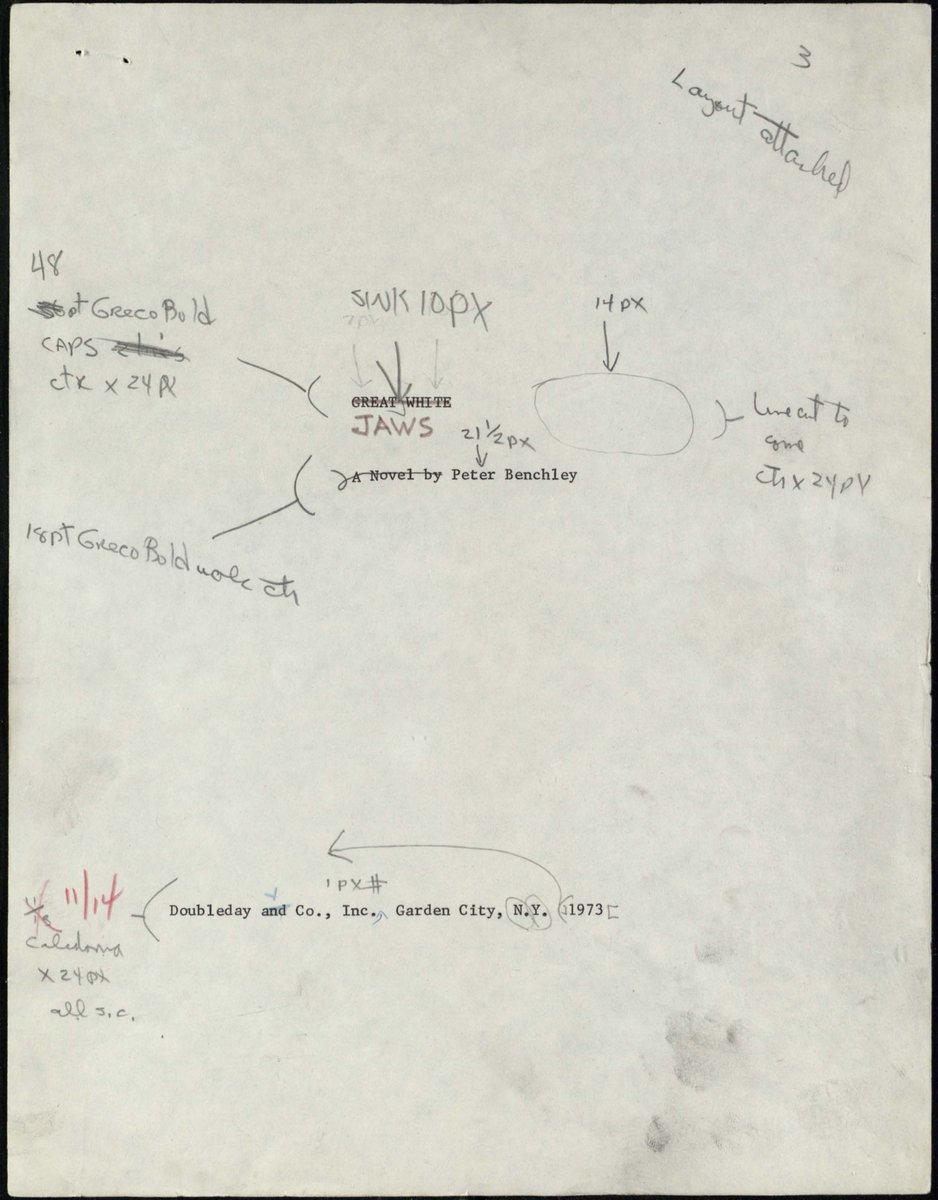 3
Layout attached
48
pt Greco Bold
CAPS
ctr x 24 PX
SINK 10 PX
14 PX
GREAT WHITE
JAWS
21 1/2 PX
A Novel by Peter Benchley
Line cut to
come
ctr x 24 PX
18 pt Greco Bold ctr
1 PX #
Doubleday and Co., Inc., Garden City, N.Y. 1973
11/14
Caledonia
x 24 PX
all s.c.